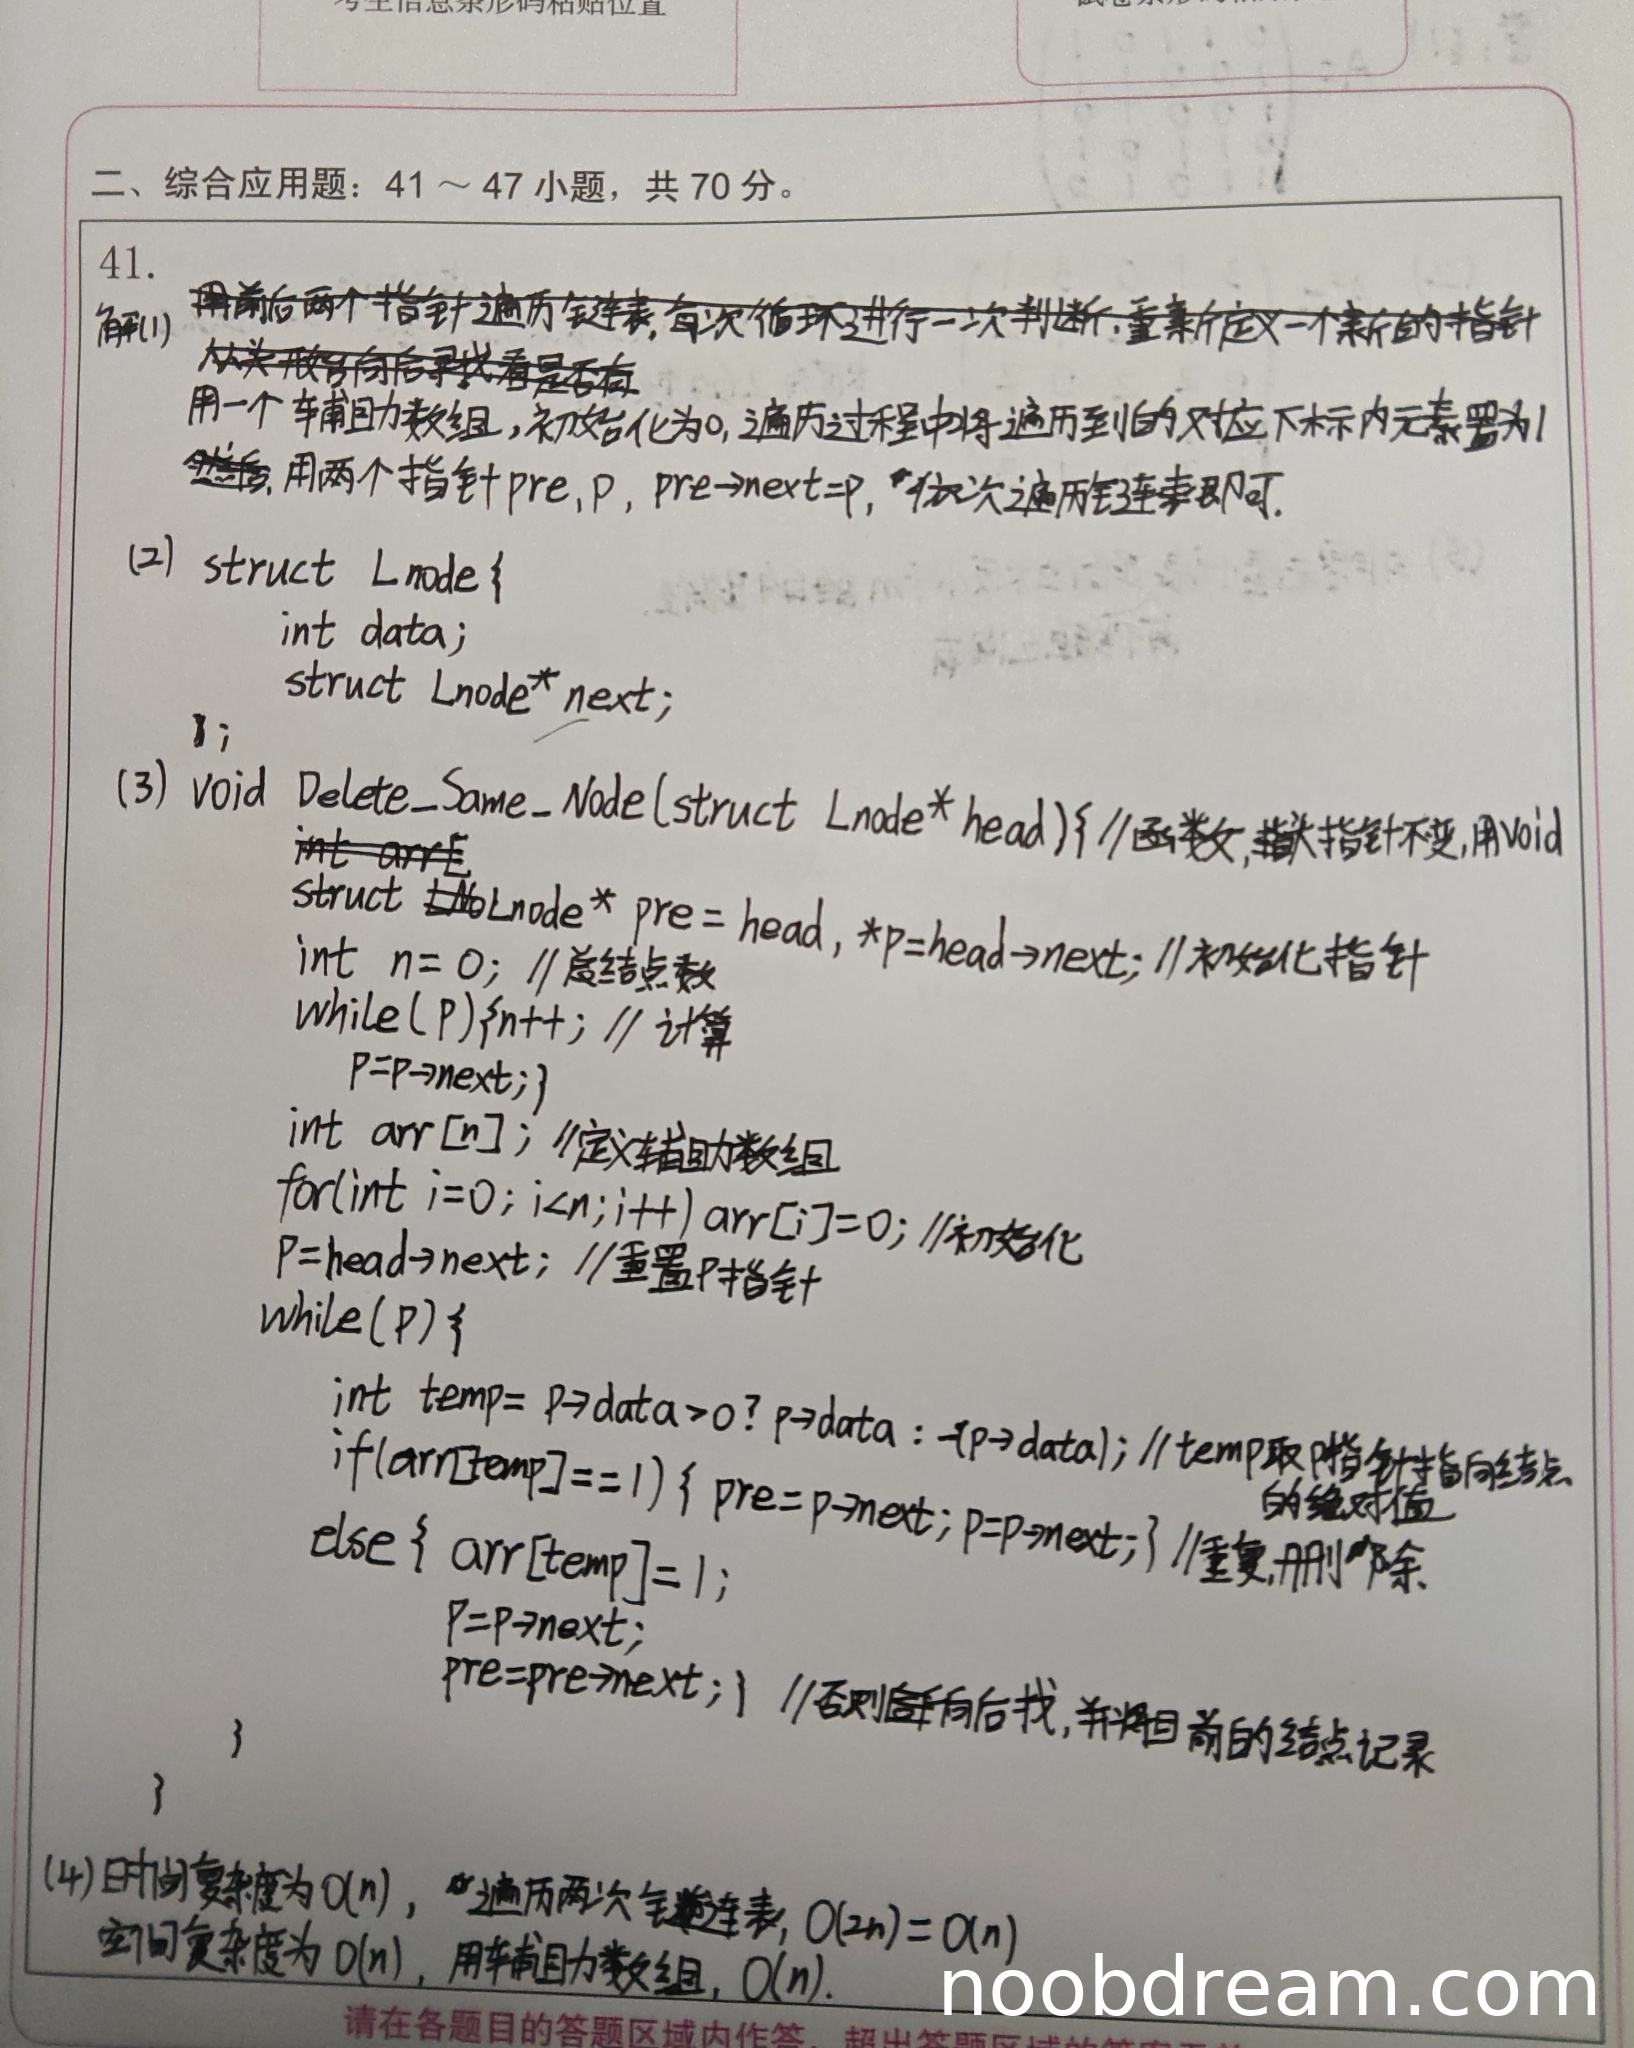 考生信息条形码粘贴位置
二、综合应用题：41 ～ 47 小题，共 70 分。
41.
解(1) 用前后两个指针遍历链表,每次循环进行一次判断,重新定义一个新的指针
从头开始向后寻找看是否有
用一个辅助数组,初始化为0,遍历过程中将遍历到的对应下标内元素置为1
然后,用两个指针pre,p, pre→next=p, 依次遍历链表即可.
(2) struct Lnode{
int data;
struct Lnode* next;
};
(3) void Delete_Same_Node(struct Lnode* head){ //函数,头指针不变,用void
int arr[
struct Lnode* pre = head, *p=head→next; //初始化指针
int n=0; //总结点数
while(p){n++; // 计算
p=p→next;}
int arr[n]; //定义辅助数组
for(int i=0; i<n; i++) arr[i]=0; //初始化
p=head→next; //重置p指针
while(p){
int temp= p→data>0? p→data : -(p→data); //temp取p指针指向结点
的绝对值
if(arr[temp]==1){ pre=p→next; p=p→next;} //重复,删除
else{ arr[temp]=1;
p=p→next;
pre=pre→next;} //否则向后找,并将目前的结点记录
}
}
(4) 时间复杂度为O(n), 遍历两次链表, O(2n)=O(n)
空间复杂度为O(n), 用辅助数组, O(n).
noobdream.com
请在各题目的答题区域内作答，超出答题区域的答案无效